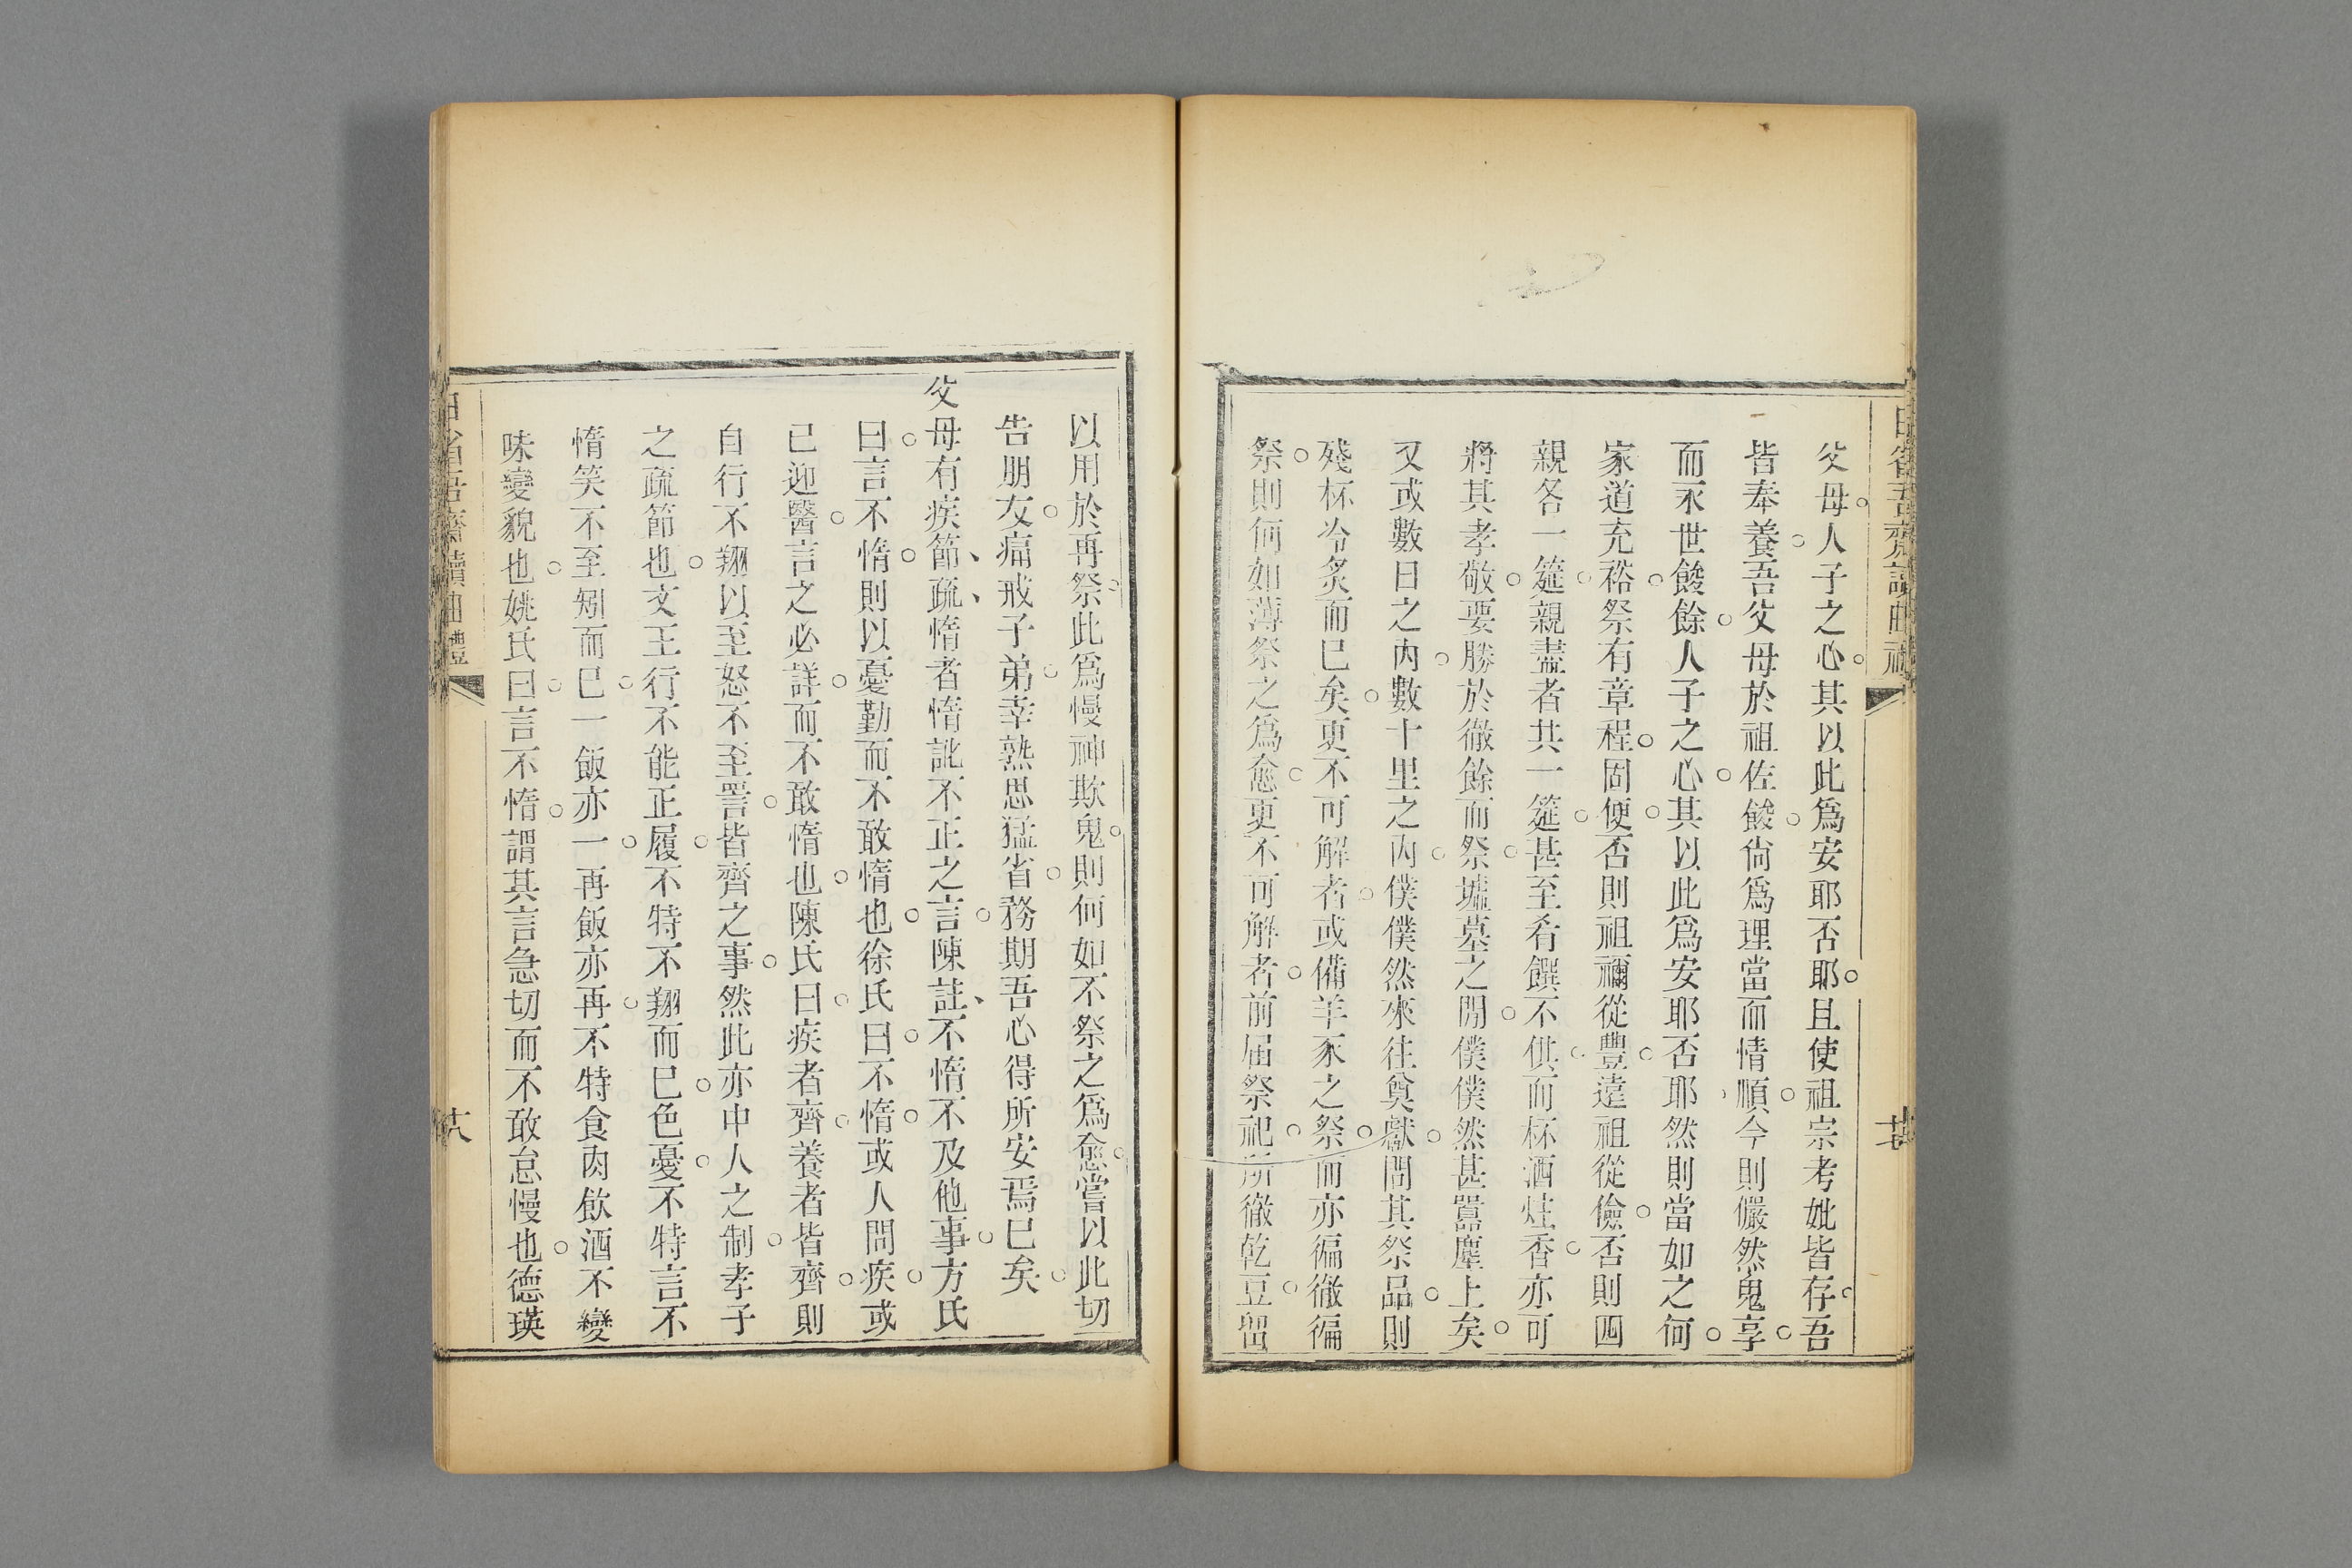 父母人子之心其以此爲安耶否耶且使祖宗考妣皆存吾
皆奉養吾父母於祖佐餕尙爲理當而情順今則儼然鬼享
而永世餕餘人子之心其以此爲安耶否耶然則當如之何
家道充裕祭有章程固便否則祖禰從豐遠祖從儉否則四
親各一筵親盡者共一筵甚至肴饌不供而杯酒炷香亦可
將其孝敬要勝於徹餘而祭墟墓之閒僕僕然甚囂塵上矣
又或數日之內數十里之內僕僕然來往奠獻問其祭品則
殘杯冷炙而已矣更不可解者或備羊豕之祭而亦徧徹徧
祭則何如薄祭之爲愈更不可解者前届祭祀所徹乾豆留
以用於再祭此爲慢神欺鬼則何如不祭之爲愈嘗以此切
告朋友痛戒子弟幸熟思猛省務期吾心得所安焉已矣
父母有疾節疏惰者惰訛不正之言陳註不惰不及他事方氏
曰言不惰則以憂勤而不敢惰也徐氏曰不惰或人問疾或
已迎醫言之必詳而不敢惰也陳氏曰疾者齊養者皆齊則
自行不翔以至怒不至詈皆齊之事然此亦中人之制孝子
之疏節也文王行不能正履不特不翔而已色憂不特言不
惰笑不至矧而已一飯亦一再飯亦再不特食肉飲酒不變
味變貌也姚氏曰言不惰謂其言急切而不敢怠慢也德瑛